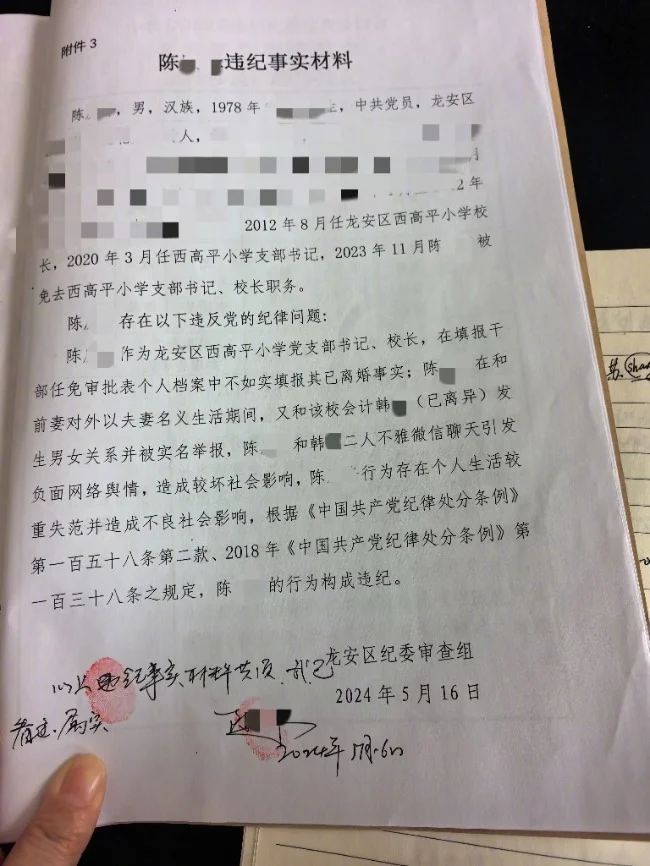 附件 3
陈 违纪事实材料
陈 ，男，汉族，1978 年 生，中共党员，龙安区
人，
月
2 年
2012 年 8 月任龙安区西高平小学校
长，2020 年 3 月任西高平小学支部书记，2023 年 11 月陈 被
免去西高平小学支部书记、校长职务。
陈 存在以下违反党的纪律问题：
陈 作为龙安区西高平小学党支部书记、校长，在填报干
部任免审批表个人档案中不如实填报其已离婚事实；陈 在和
前妻对外以夫妻名义生活期间，又和该校会计韩 （已离异）发
生男女关系并被实名举报，陈 和韩 二人不雅微信聊天引发
负面网络舆情，造成较坏社会影响，陈 行为存在个人生活较
重失范并造成不良社会影响，根据《中国共产党纪律处分条例》
第一百五十八条第二款、2018 年《中国共产党纪律处分条例》第
一百三十八条之规定，陈 的行为构成违纪。
龙安区纪委审查组
以上违纪事实材料共 页，我已
2024 年 5 月 16 日
看过，属实
2024年5月16日
苏